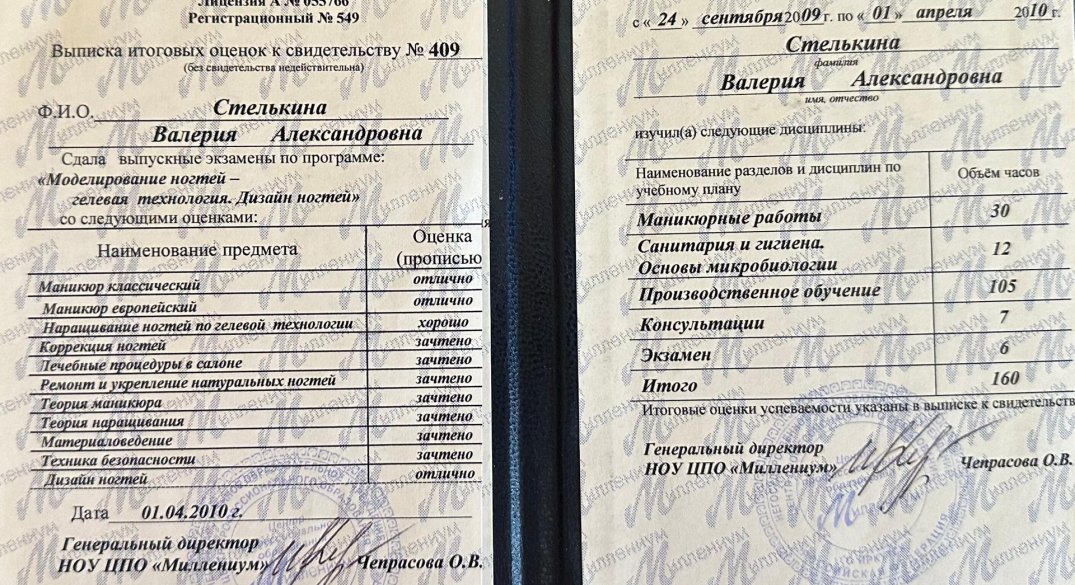 Лицензия А № 053766
Регистрационный № 549
Выписка итоговых оценок к свидетельству № 409
(без свидетельства недействительна)
Ф.И.О. Стелькина
Валерия Александровна
Сдала выпускные экзамены по программе:
«Моделирование ногтей –
гелевая технология. Дизайн ногтей»
со следующими оценками:
Наименование предмета Оценка (прописью
Маникюр классический отлично
Маникюр европейский отлично
Наращивание ногтей по гелевой технологии хорошо
Коррекция ногтей зачтено
Лечебные процедуры в салоне зачтено
Ремонт и укрепление натуральных ногтей зачтено
Теория маникюра зачтено
Теория наращивания зачтено
Материаловедение зачтено
Техника безопасности зачтено
Дизайн ногтей отлично
Дата 01.04.2010 г.
Генеральный директор
НОУ ЦПО «Миллениум» Чепрасова О.В.
с « 24 » сентября 2009 г. по « 01 » апреля 2010 г.
Стелькина
фамилия
Валерия Александровна
имя, отчество
изучил(а) следующие дисциплины:
Наименование разделов и дисциплин по учебному плану Объём часов
Маникюрные работы 30
Санитария и гигиена.
Основы микробиологии 12
Производственное обучение 105
Консультации 7
Экзамен 6
Итого 160
Итоговые оценки успеваемости указаны в выписке к свидетельств
Генеральный директор
НОУ ЦПО «Миллениум» Чепрасова О.В.